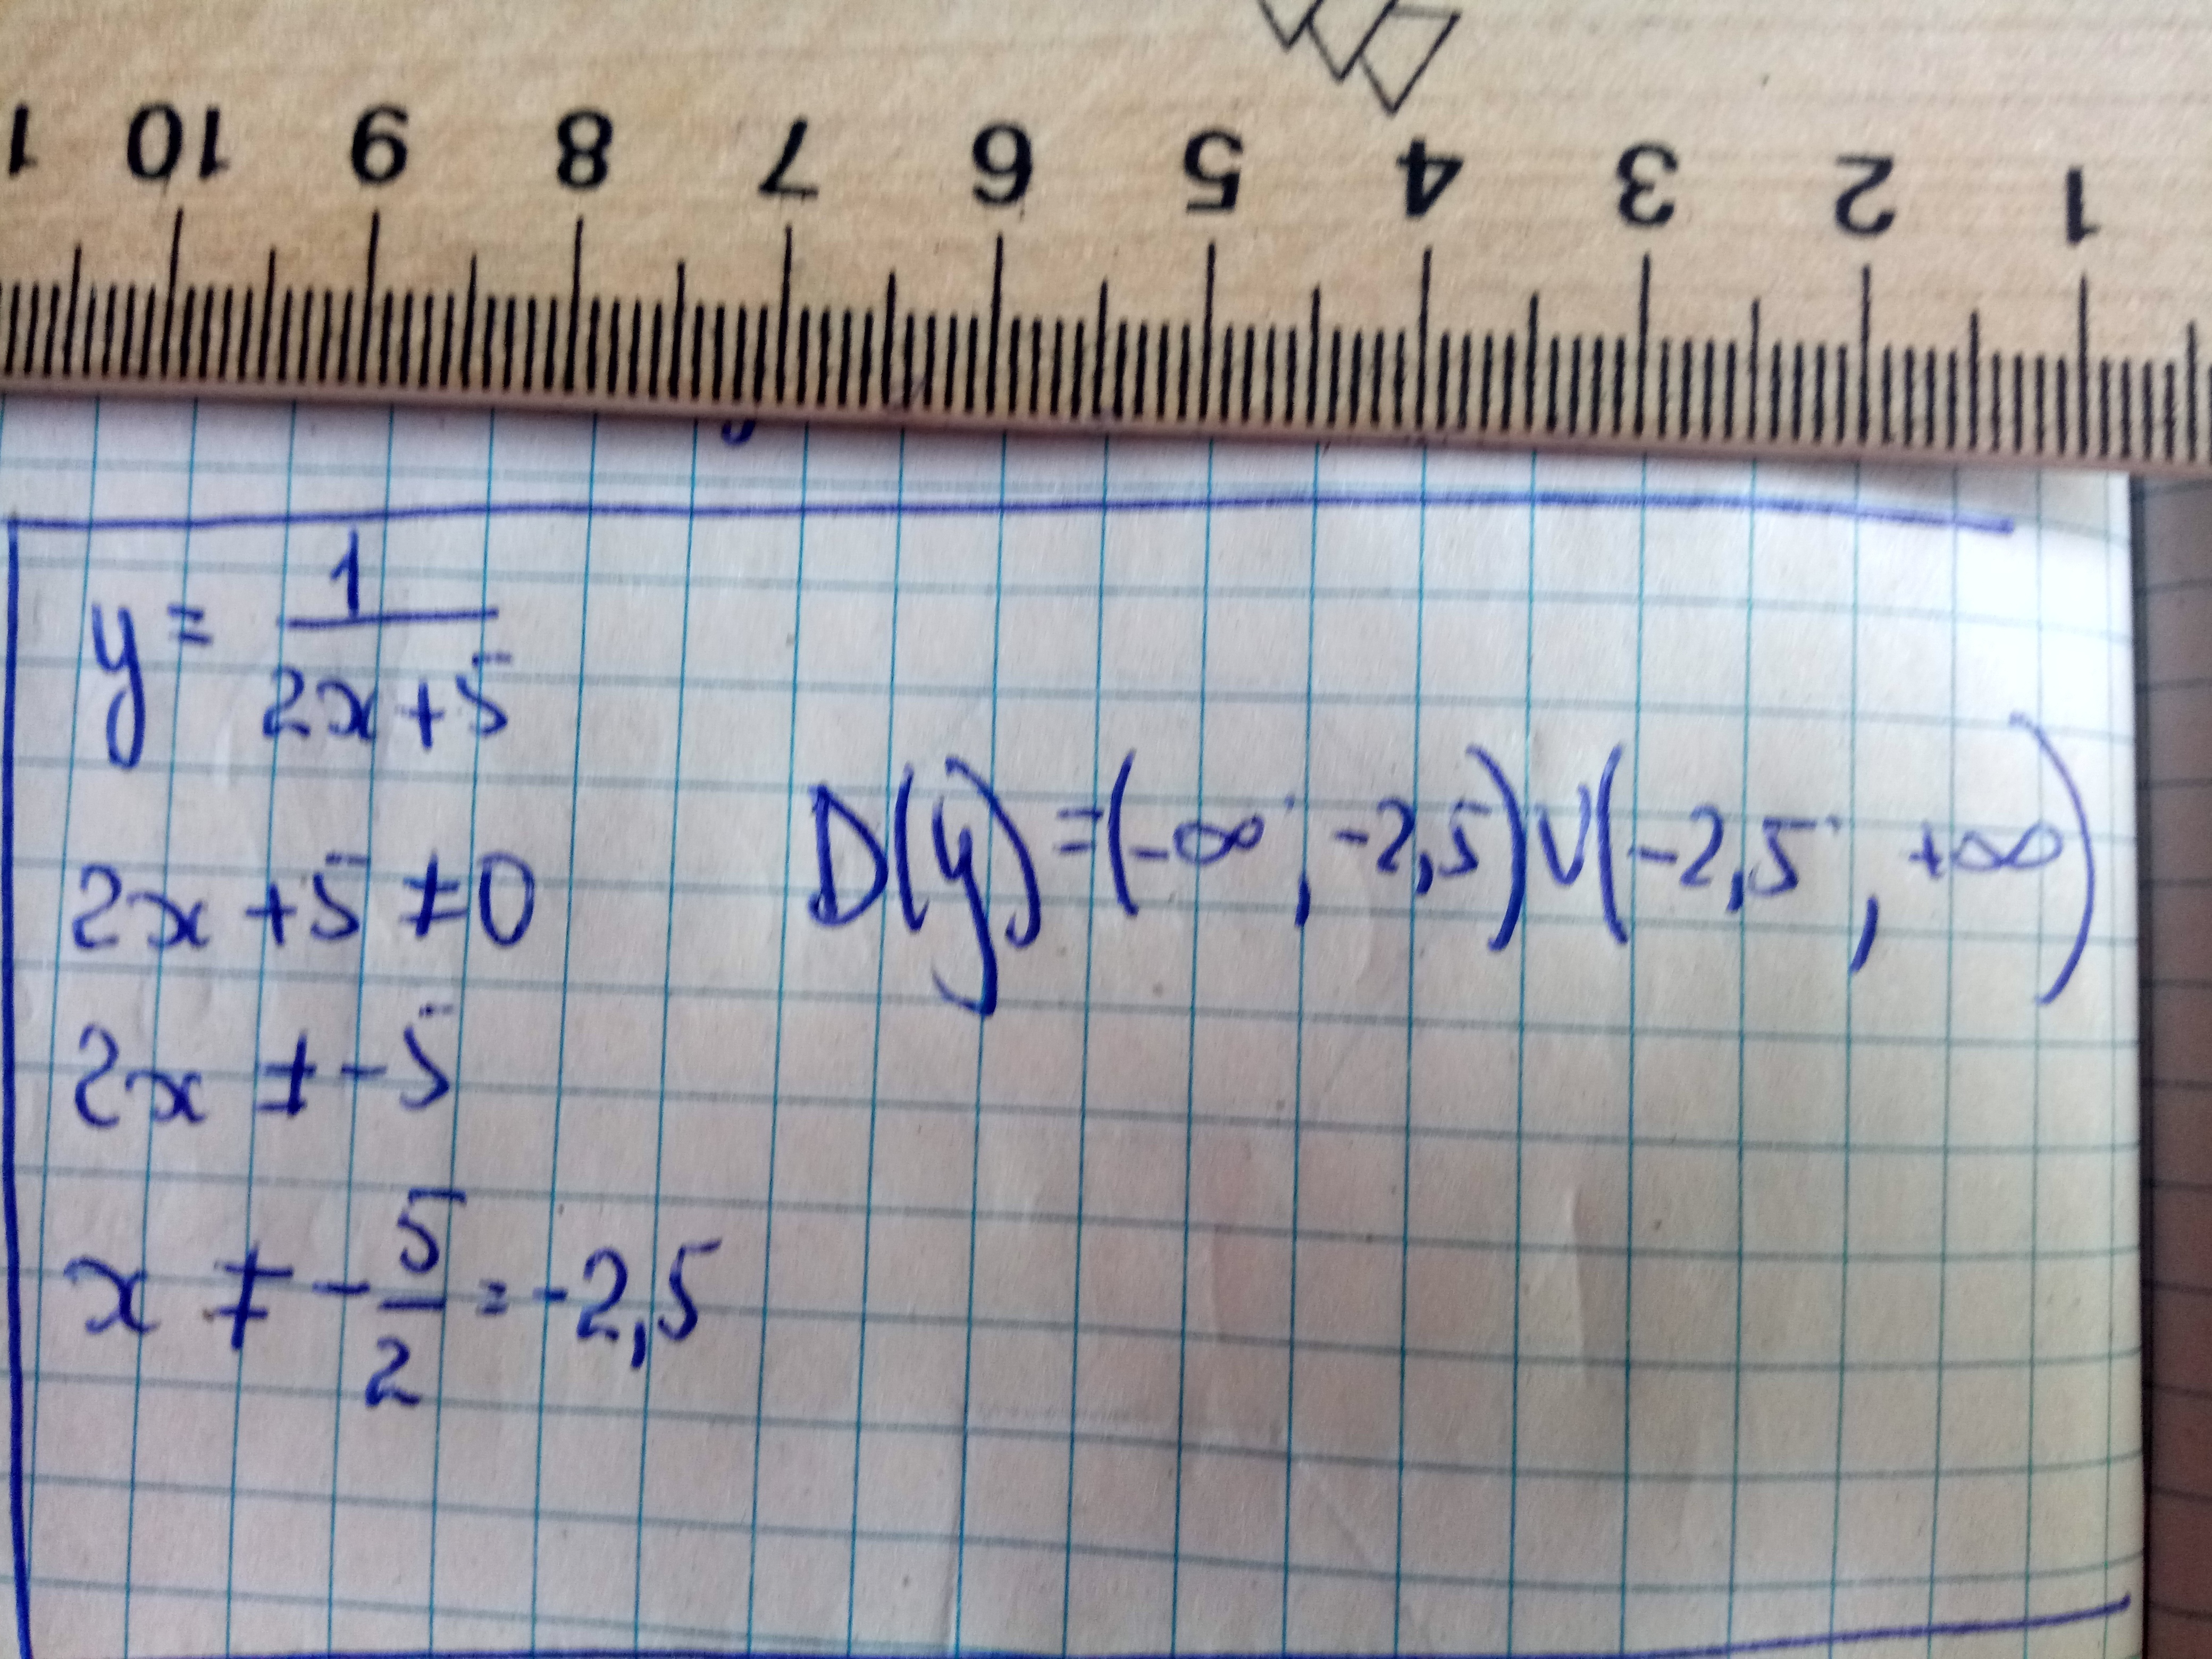 1 10 9 8 7 6 5 4 3 2 1
y = 1/(2x+5)
2x+5≠0
2x≠-5
x≠-5/2=-2,5
D(y)=(-∞;-2,5)∪(-2,5;+∞)